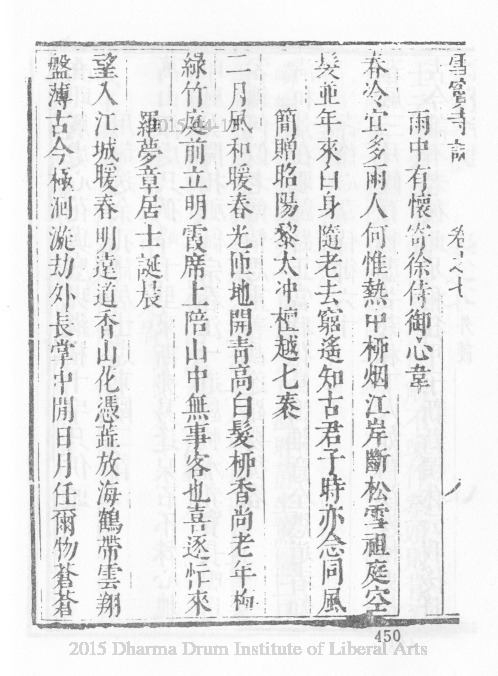 雪竇寺誌 卷之七 八
雨中有懷寄徐侍御心韋
春冷宜多雨人何惟熱中柳烟江岸斷松雪祖庭空
髮亚年來白身隨老去窮遙知古君子時亦念同風
簡贈昭陽黎太冲檀越七袠
二月風和暖春光匝地開青高白髮柳香尚老年梅
綠竹庭前立明霞席上陪山中無事客也喜逐忙來
羅夢章居士誕晨
望入江城暖春明遠道香山花憑蕋放海鶴帶雲翔
盤薄古今極洄漩劫外長掌中閒日月任爾物蒼蒼
450
2015 Dharma Drum Institute of Liberal Arts